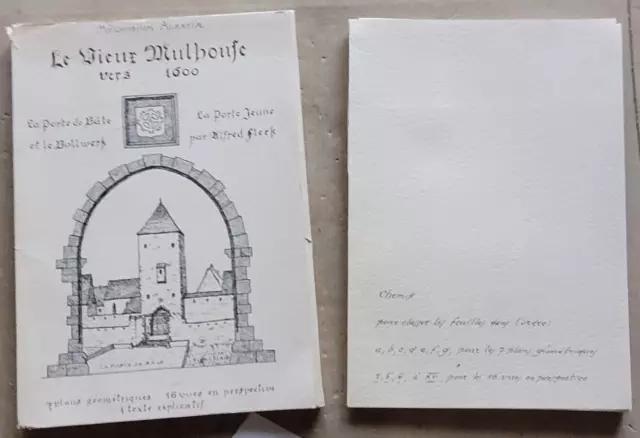 Le Vieux Mulhouse
vers 1600
La Porte de Bâle
et le Bollwerk
La Porte Jeune
par Alfred Fleck
LA PORTE DE BALE
7 plans géométriques 16 vues en perspective
1 texte explicatif
Chemise
pour classer les feuilles dans l'ordre:
a, b, c, d, e, f, g, pour les 7 plans géométriques
à XVI, pour les 16 vues en perspective